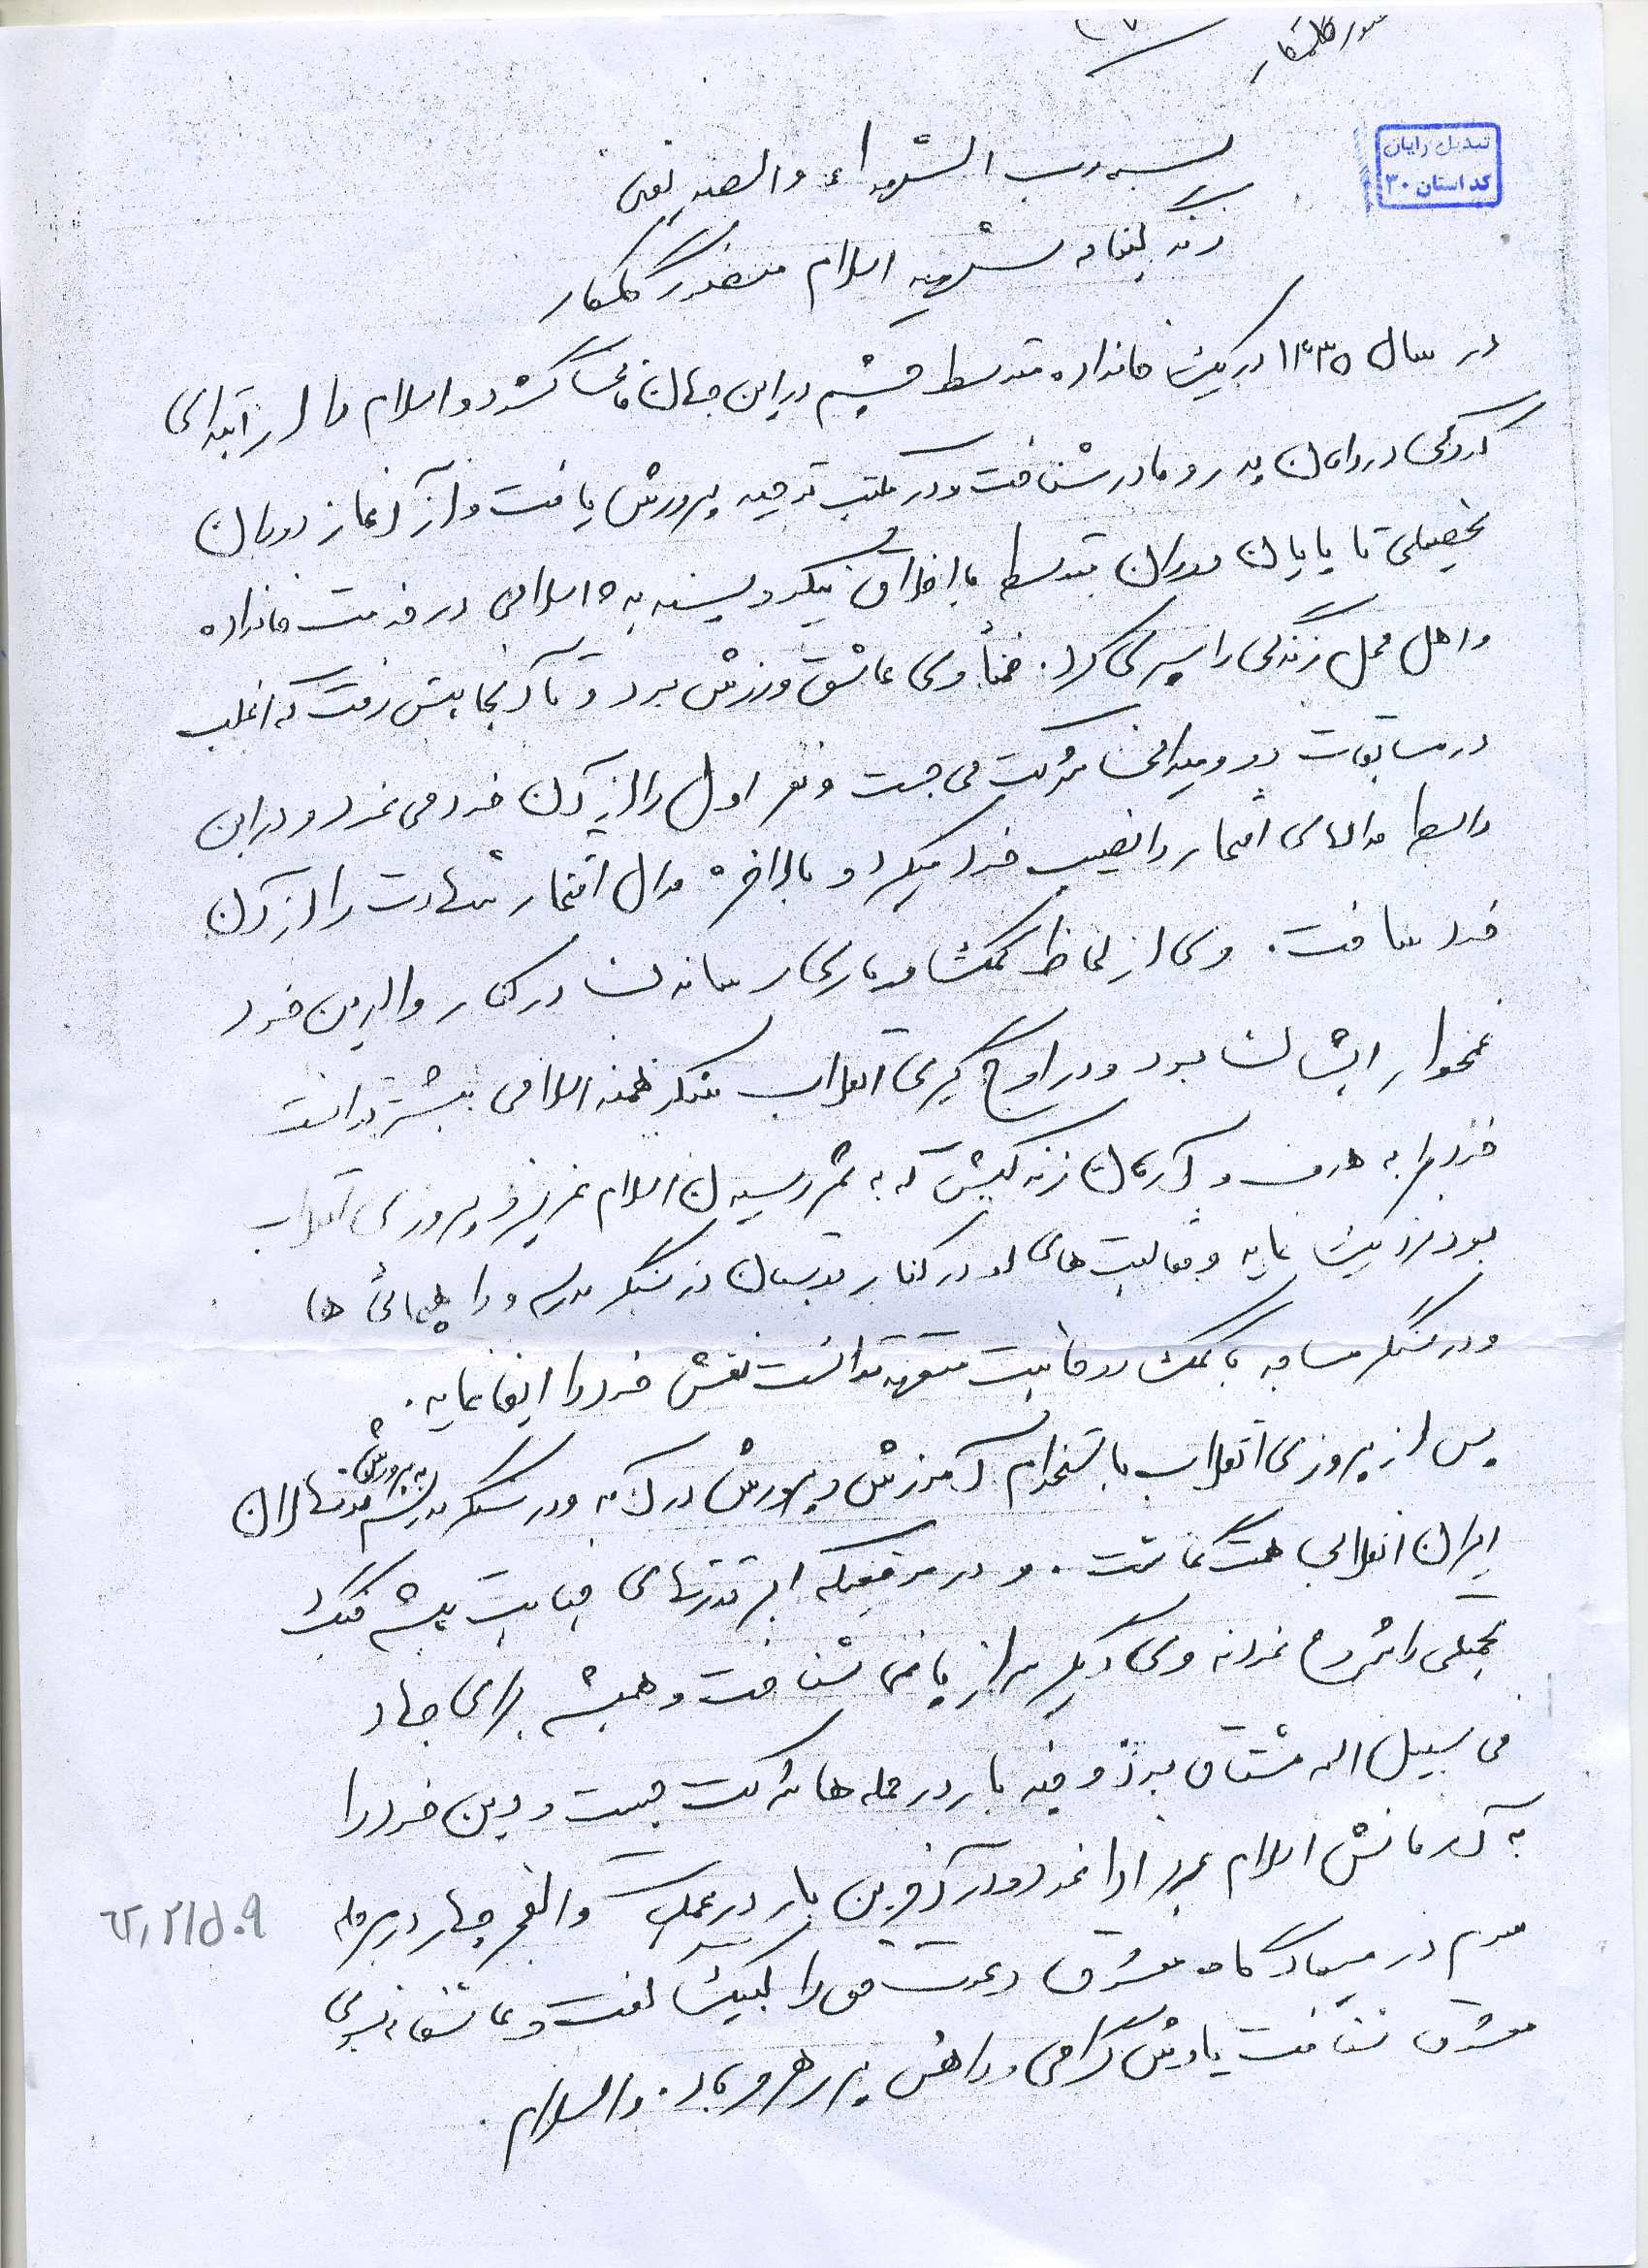 ۱۷
تبدیل رایان
کد استان ۳۰
بسم رب الشهداء والصدیقین
زندگینامه شهید اسلام منصور گلمکار
در سال ۱۳۳۵ در یک خانواده متوسط چشم در این جهان فانی گشود و اسلام را از ابتدای
کودکی در دامان پدر و مادر شناخت و در مکتب توحید پرورش یافت و از آغاز دوران
تحصیلی تا پایان دوران متوسطه با اخلاق نیکو و پسندیده اسلامی در خدمت خانواده
و اهل محل زندگی را سپری کرد. ضمناً وی عاشق ورزش بود و تا آنجا پیش رفت که اغلب
در مسابقات دو و میدانی شرکت می جست و نفر اول را از آن خود می نمود و در این
رابطه مدالهای افتخار را نصیب خود میکرد و بالاخره مدال افتخار شهادت را از آن
خود ساخت. وی از لحاظ کمک و یاری رساندن در کنار والدین خود
غمخوار ایشان بود و در اوج گیری انقلاب شکوهمند اسلامی بیشتر توانست
خود را به هدف و آرمان زندگیش که به ثمر رسیدن اسلام عزیز و پیروزی انقلاب
بود نزدیک نماید و فعالیت های او در کنار دوستان در سنگر مدرسه و راهپیمائی ها
و در سنگر مساجد با کمک روحانیت متعهد توانست نقش خود را ایفا نماید.
پس از پیروزی انقلاب با استخدام آموزش و پرورش درآمد و در سنگر مدرسه به پرورش نونهالان
ایران انقلابی همت گماشت. و در موقعیکه ابر قدرتهای جنایت پیشه جنگ
تحمیلی را شروع نمودند وی دیگر سر از پا نمی شناخت و همیشه برای جهاد
فی سبیل اله مشتاق بود و چند بار در حمله ها شرکت جست و دین خود را
به آرمانش اسلام عزیز ادا نمود و در آخرین بار در عملیات والفجر چهار در مرحله
سوم در میعادگاه معشوق دعوت حق را لبیک گفت و عاشقانه بسوی
معشوق شتافت یادش گرامی و راهش پر رهرو باد. والسلام.